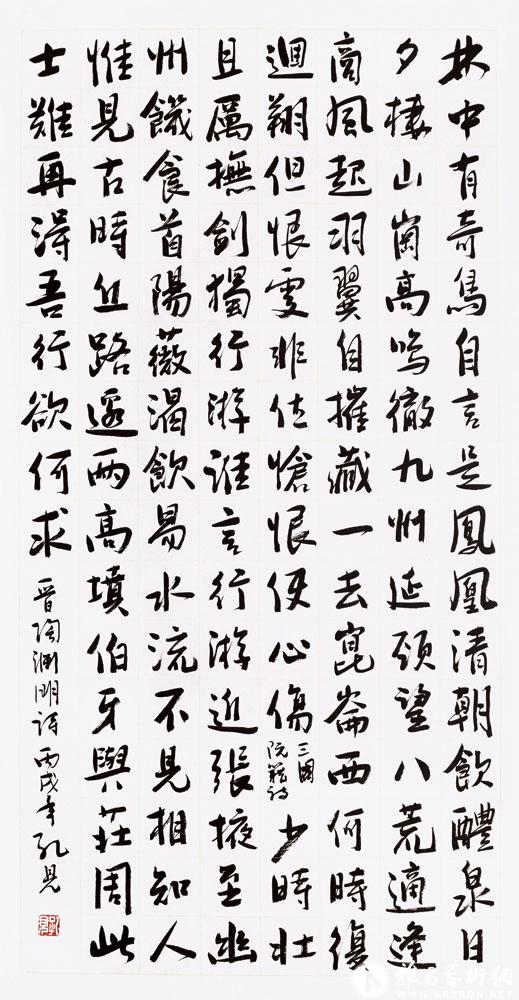 林中有奇鳥自言是鳳凰清朝飲醴泉日
夕棲山崗高鳴徹九州延頸望八荒適逢
商風起羽翼自摧藏一去崑崙西何時復
迴翔但恨處非位愴恨使心傷三國阮籍詩少時壯
且厲撫劍獨行游誰言行游近張掖至幽
州饑食首陽薇渴飲易水流不見相知人
惟見古時丘路邊兩高墳伯牙與莊周此
士難再得吾行欲何求晋陶渊明詩丙戌年孔見
雅昌藝術網
WWW.ARTRON.NET